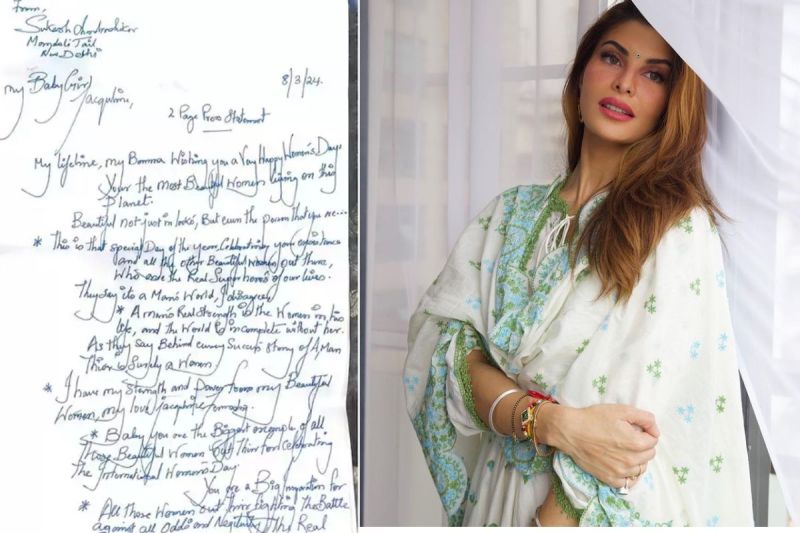 From,
Sukesh Chandrashekar
Mandoli Jail
New Delhi
8/3/24.
My Baby Girl
Jacqueline,
2 Page Press Statement
My lifeline, my Bomma Wishing you a Very Happy Women's Day
Your the most Beautiful Women living on this
Planet.
Beautiful not just in looks, But even the person that you are...
* This is that special Day of the year, Celebrating your
and all the other Beautiful Women out there,
Who are the Real Super heros of our lives.
They say its a Man's World, I disagree
* A man's Real Strength is the Women in his
life, and the World is incomplete without her.
As they say Behind every Success story of A Man
Their is Surely a Women
* I have my Strength and Power from my Beautiful
Women, my love Jacqueline
* Baby you are the Biggest example of all
Those Beautiful Women out their for Celebrating
The International Women's Day
You are a Big Inspiration for
* All Those Women out their fighting The Battle
against all Odds and Negitivity The Real